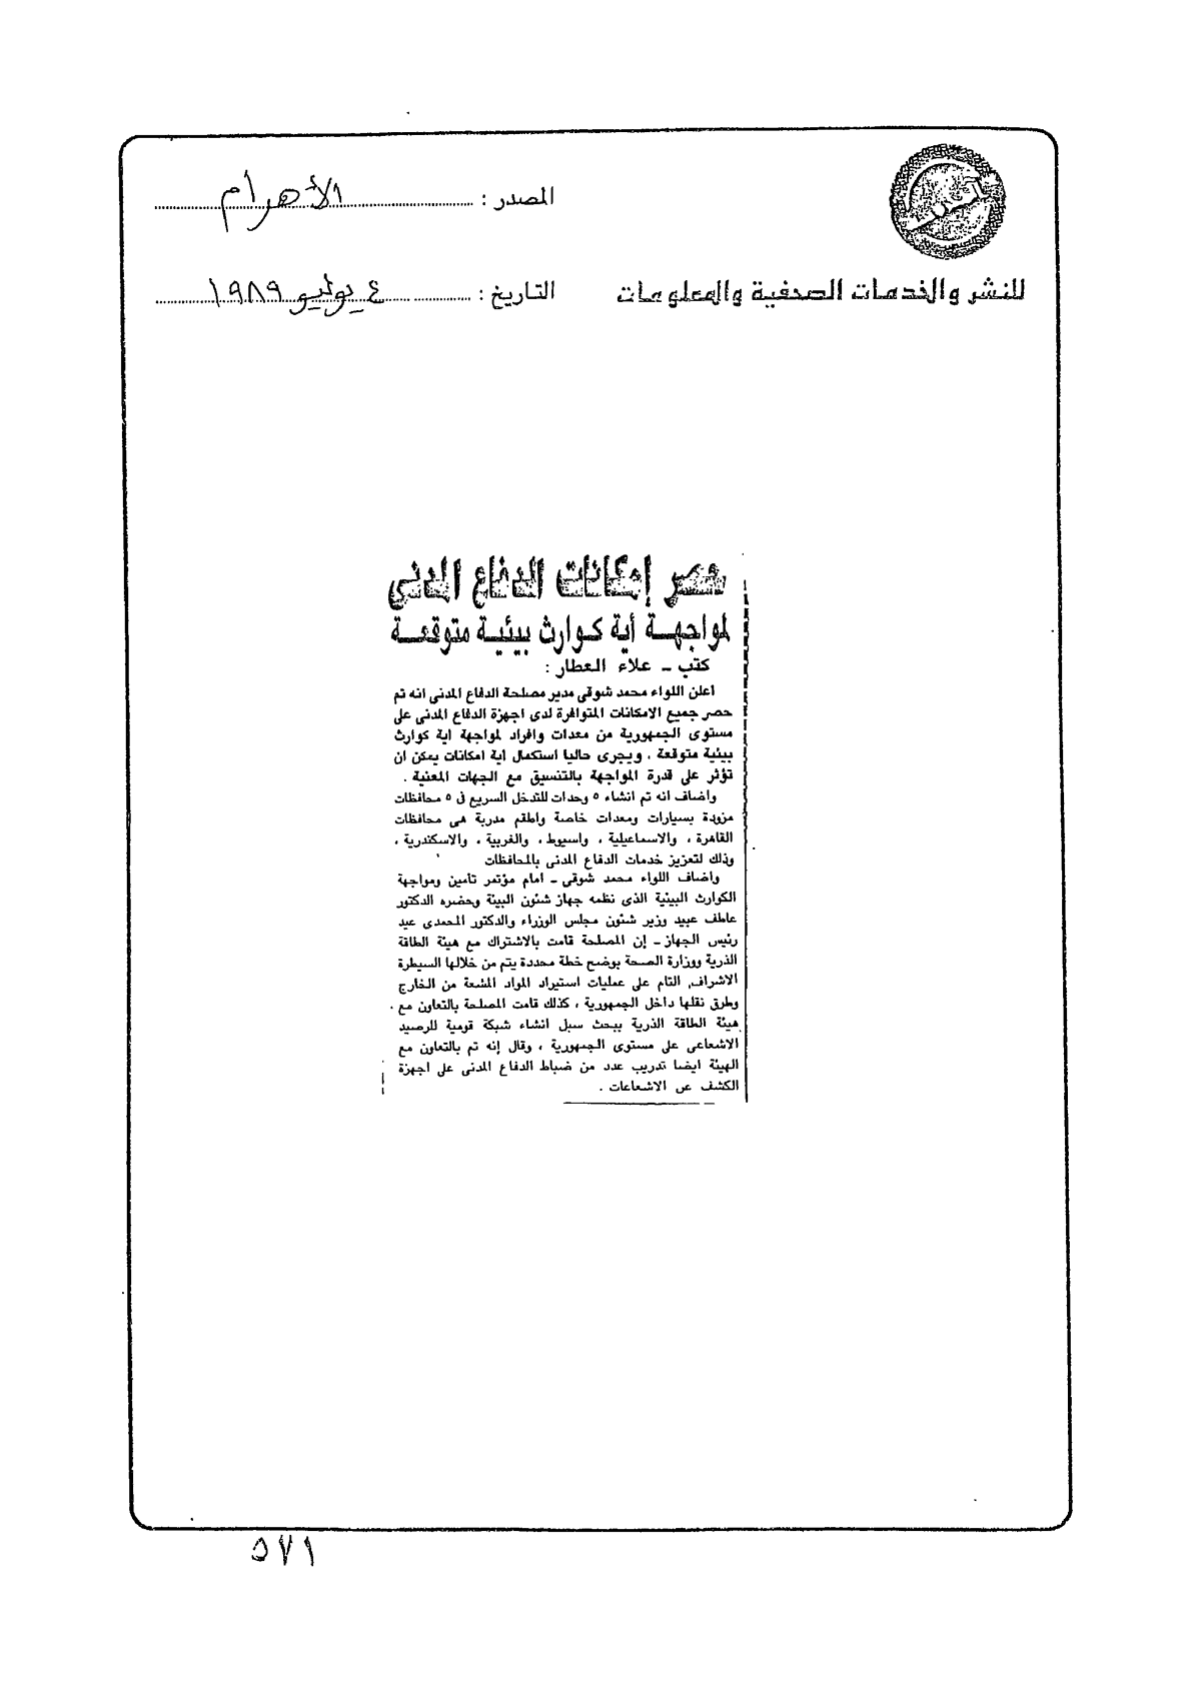 المصدر : الأهرام
للنشر والخدمات الصحفية والمعلومات
التاريخ : ٤ يوليو ١٩٨٩
حصر إمكانات الدفاع المدنى
لمواجهـة أية كـوارث بيئيـة متوقعـة
كتب ـ علاء العطار :
اعلن اللواء محمد شوقى مدير مصلحة الدفاع المدنى انه تم
حصر جميع الامكانات المتوافرة لدى اجهزة الدفاع المدنى على
مستوى الجمهورية من معدات وافراد لمواجهة اية كوارث
بيئية متوقعة ، ويجرى حاليا استكمال اية امكانات يمكن ان
تؤثر على قدرة المواجهة بالتنسيق مع الجهات المعنية .
واضاف انه تم انشاء ٥ وحدات للتدخل السريع فى ٥ محافظات
مزودة بسيارات ومعدات خاصة واطقم مدربة هى محافظات
القاهرة ، والاسماعيلية ، واسيوط ، والغربية ، والاسكندرية ،
وذلك لتعزيز خدمات الدفاع المدنى بالمحافظات
واضاف اللواء محمد شوقى ـ امام مؤتمر تأمين ومواجهة
الكوارث البيئية الذى نظمه جهاز شئون البيئة وحضره الدكتور
عاطف عبيد وزير شئون مجلس الوزراء والدكتور المحمدى عيد
رئيس الجهاز ـ إن المصلحة قامت بالاشتراك مع هيئة الطاقة
الذرية ووزارة الصحة بوضع خطة محددة يتم من خلالها السيطرة
الاشراف التام على عمليات استيراد المواد المشعة من الخارج
وطرق نقلها داخل الجمهورية ، كذلك قامت المصلحة بالتعاون مع
هيئة الطاقة الذرية ببحث سبل انشاء شبكة قومية للرصيد
الاشعاعى على مستوى الجمهورية ، وقال إنه تم بالتعاون مع
الهيئة ايضا تدريب عدد من ضباط الدفاع المدنى على اجهزة
الكشف عن الاشعاعات .
٥٧١